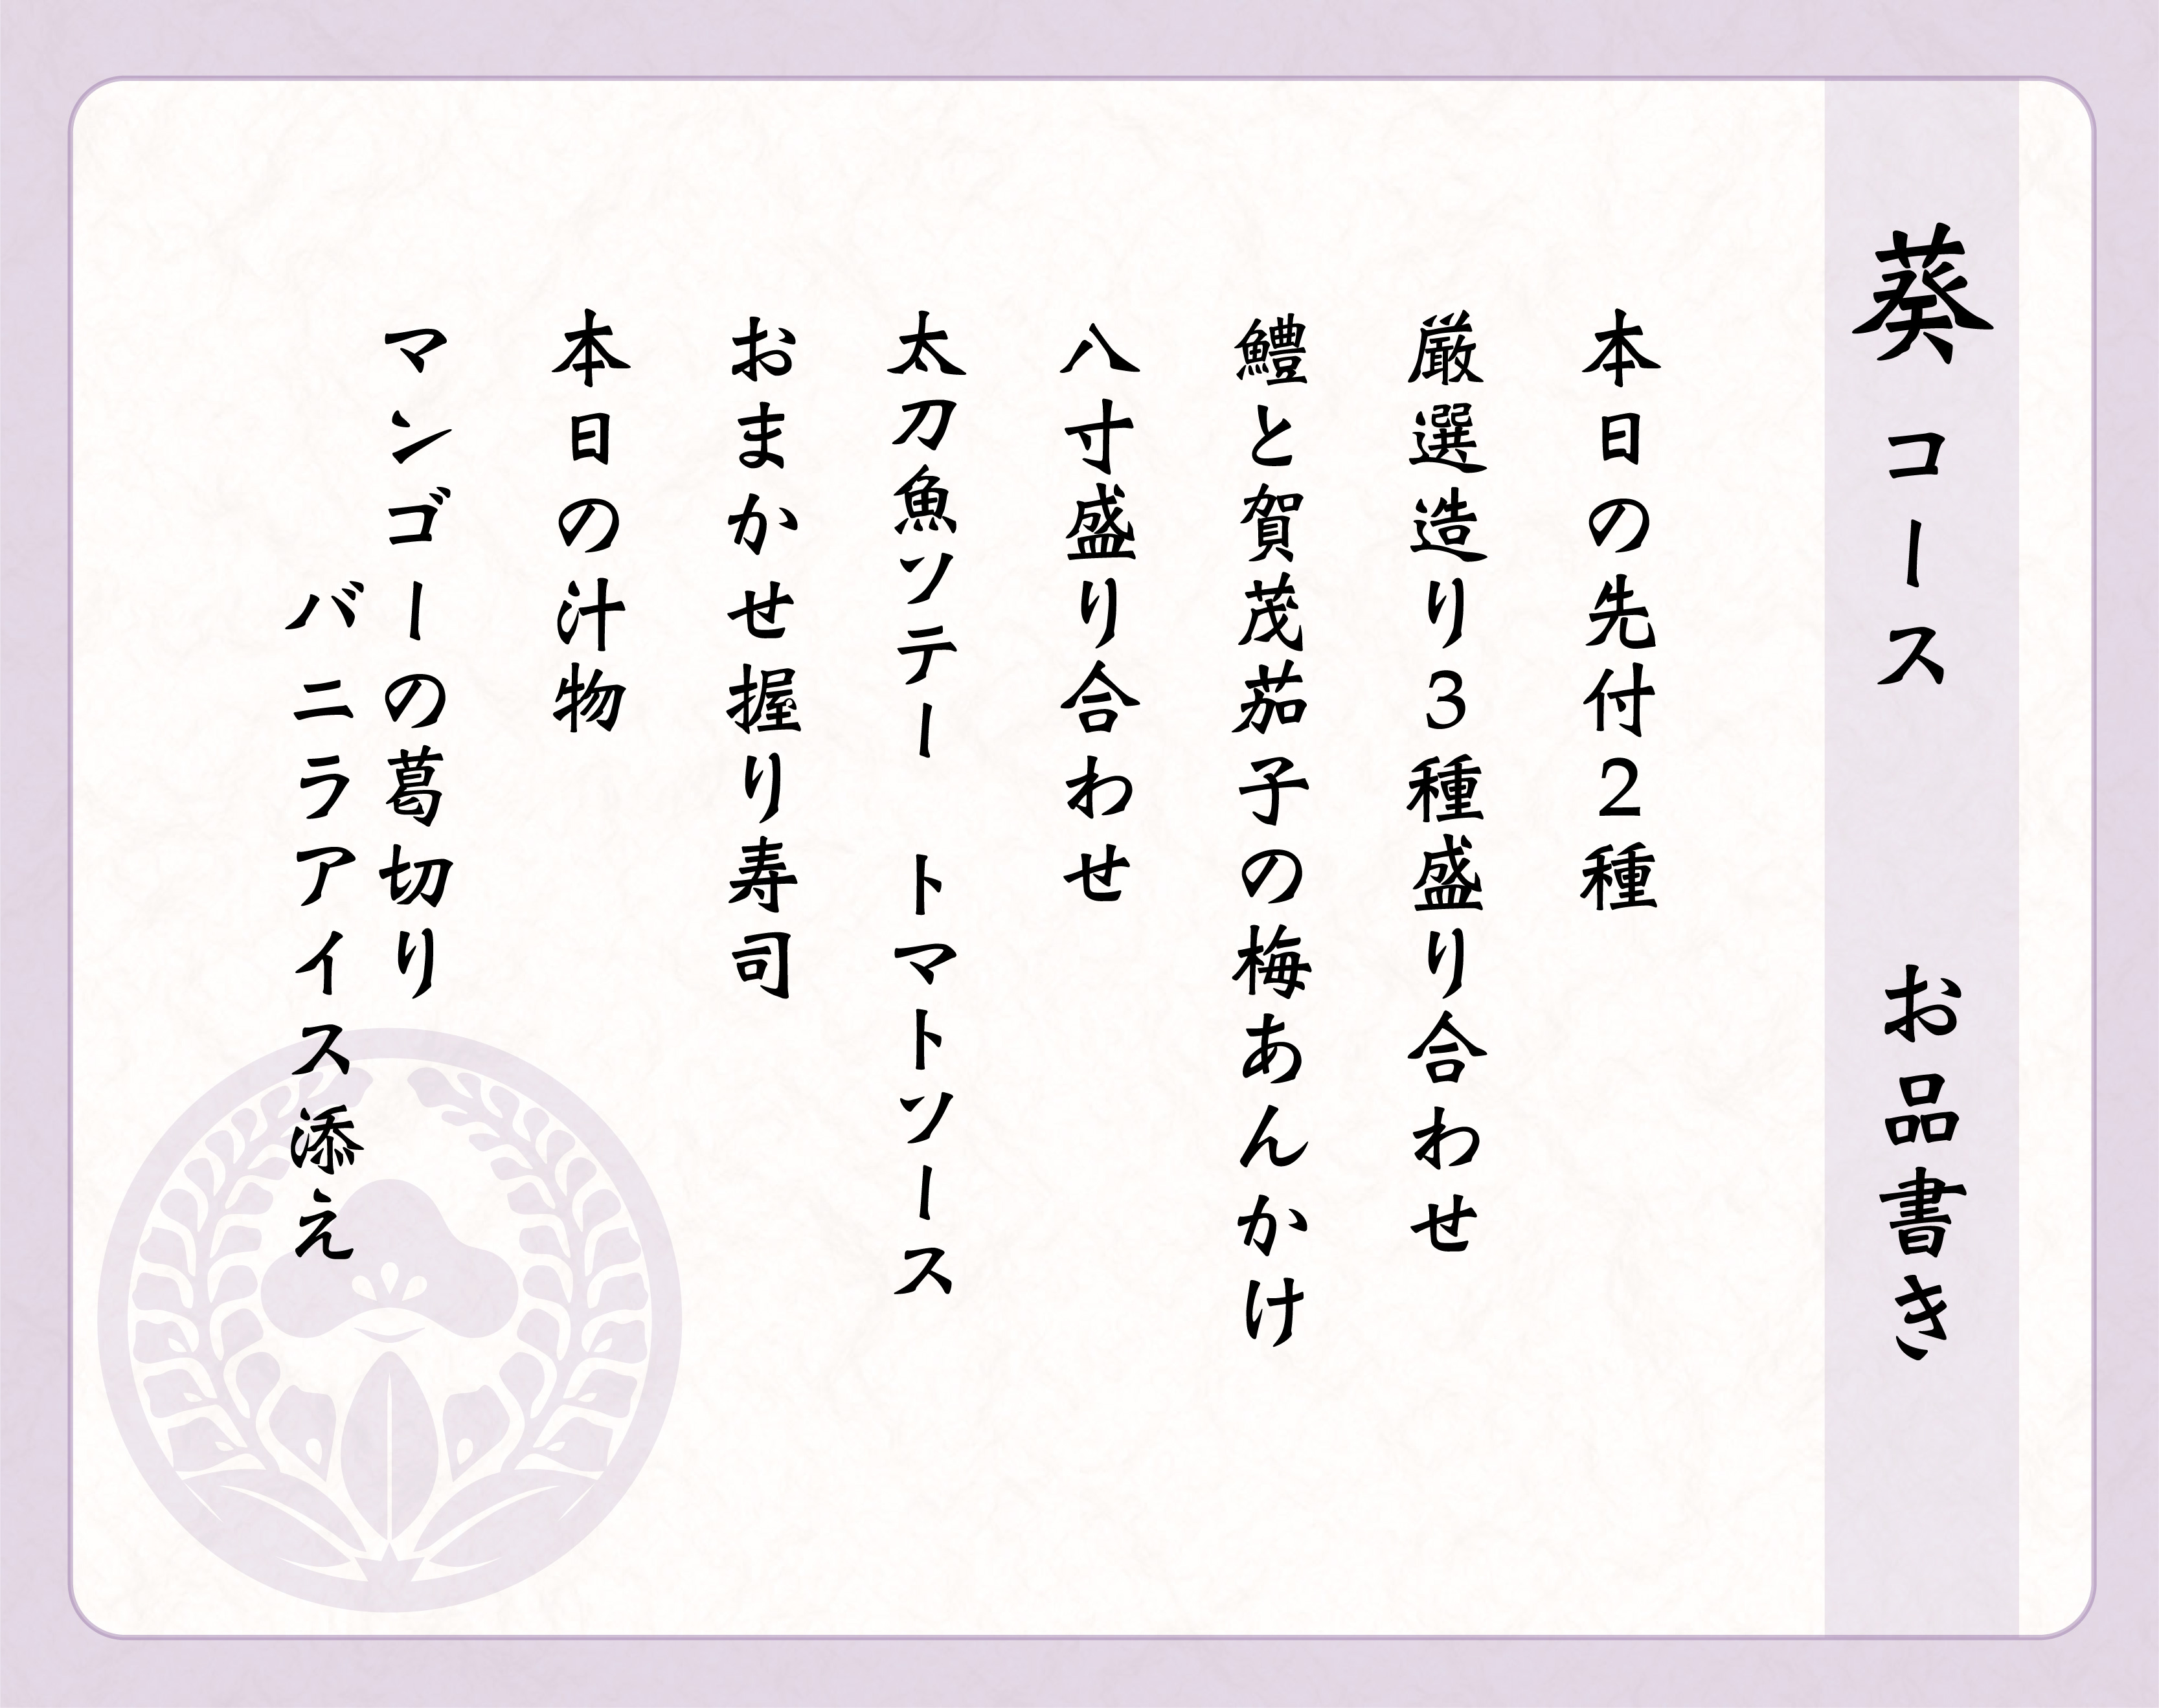 葵コース　お品書き
本日の先付2種
厳選造り3種盛り合わせ
鱧と賀茂茄子の梅あんかけ
八寸盛り合わせ
太刀魚ソテー　トマトソース
おまかせ握り寿司
本日の汁物
マンゴーの葛切り
バニラアイス添え